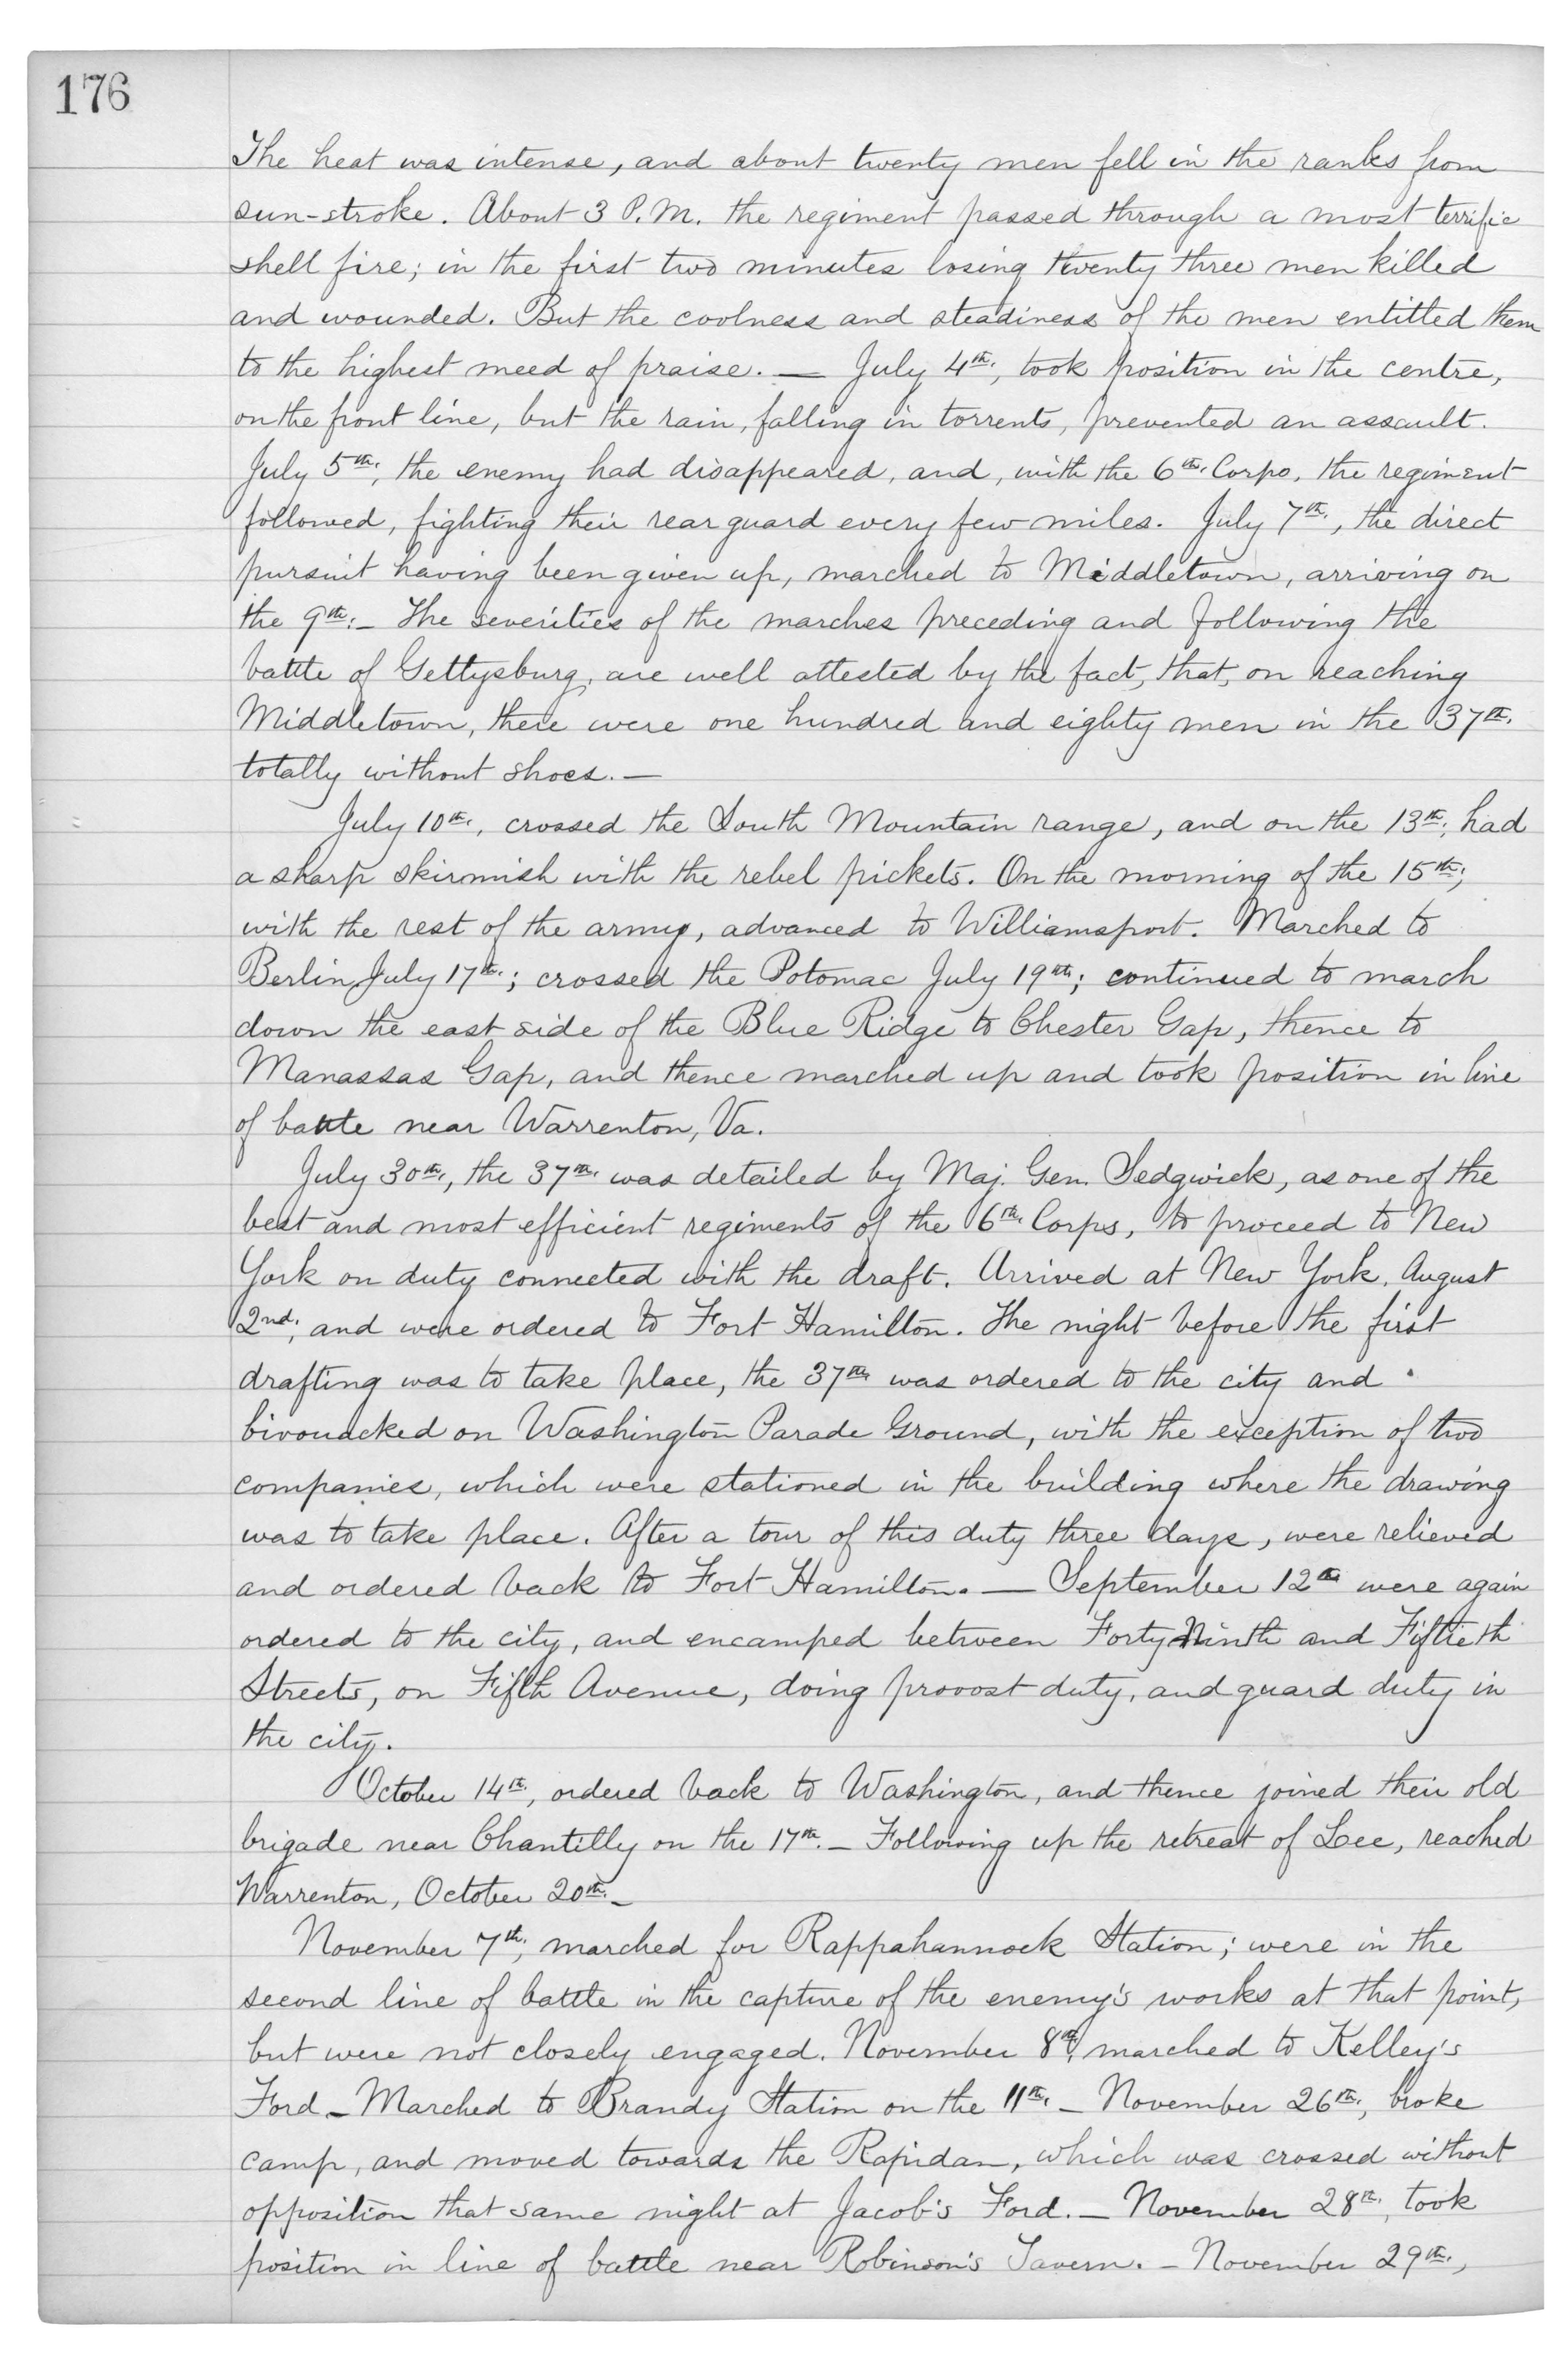 176
The heat was intense, and about twenty men fell in the ranks from
sun-stroke. About 3 P.M. the regiment passed through a most terrific
shell fire; in the first two minutes losing twenty three men killed
and wounded. But the coolness and steadiness of the men entitled them
to the highest meed of praise. — July 4th, took position in the centre,
on the front line, but the rain, falling in torrents, prevented an assault.
July 5th, the enemy had disappeared, and, with the 6th Corps, the regiment
followed, fighting their rear guard every few miles. July 7th, the direct
pursuit having been given up, marched to Middletown, arriving on
the 9th. – The severities of the marches preceding and following the
battle of Gettysburg, are well attested by the fact, that, on reaching
Middletown, there were one hundred and eighty men in the 37th
totally without shoes. —
July 10th, crossed the South Mountain range, and on the 13th, had
a sharp skirmish with the rebel pickets. On the morning of the 15th,
with the rest of the army, advanced to Williamsport. Marched to
Berlin July 17th; crossed the Potomac July 19th; continued to march
down the east side of the Blue Ridge to Chester Gap, thence to
Manassas Gap, and thence marched up and took position in line
of battle near Warrenton, Va.
July 30th, the 37th was detailed by Maj. Gen. Sedgwick, as one of the
best and most efficient regiments of the 6th Corps, to proceed to New
York on duty connected with the draft. Arrived at New York, August
2nd, and were ordered to Fort Hamilton. The night before the first
drafting was to take place, the 37th was ordered to the city and
bivouacked on Washington Parade Ground, with the exception of two
companies, which were stationed in the building where the drawing
was to take place. After a tour of this duty three days, were relieved
and ordered back to Fort Hamilton. — September 12th were again
ordered to the city, and encamped between Forty Ninth and Fiftieth
Streets, on Fifth Avenue, doing provost duty, and guard duty in
the city.
October 14th, ordered back to Washington, and thence joined their old
brigade near Chantilly on the 17th. – Following up the retreat of Lee, reached
Warrenton, October 20th. –
November 7th, marched for Rappahannock Station; were in the
second line of battle in the capture of the enemy's works at that point,
but were not closely engaged. November 8th, marched to Kelley's
Ford – Marched to Brandy Station on the 11th. – November 26th, broke
camp, and moved towards the Rapidan, which was crossed without
opposition that same night at Jacob's Ford. – November 28th, took
position in line of battle near Robinson's Tavern. – November 29th,